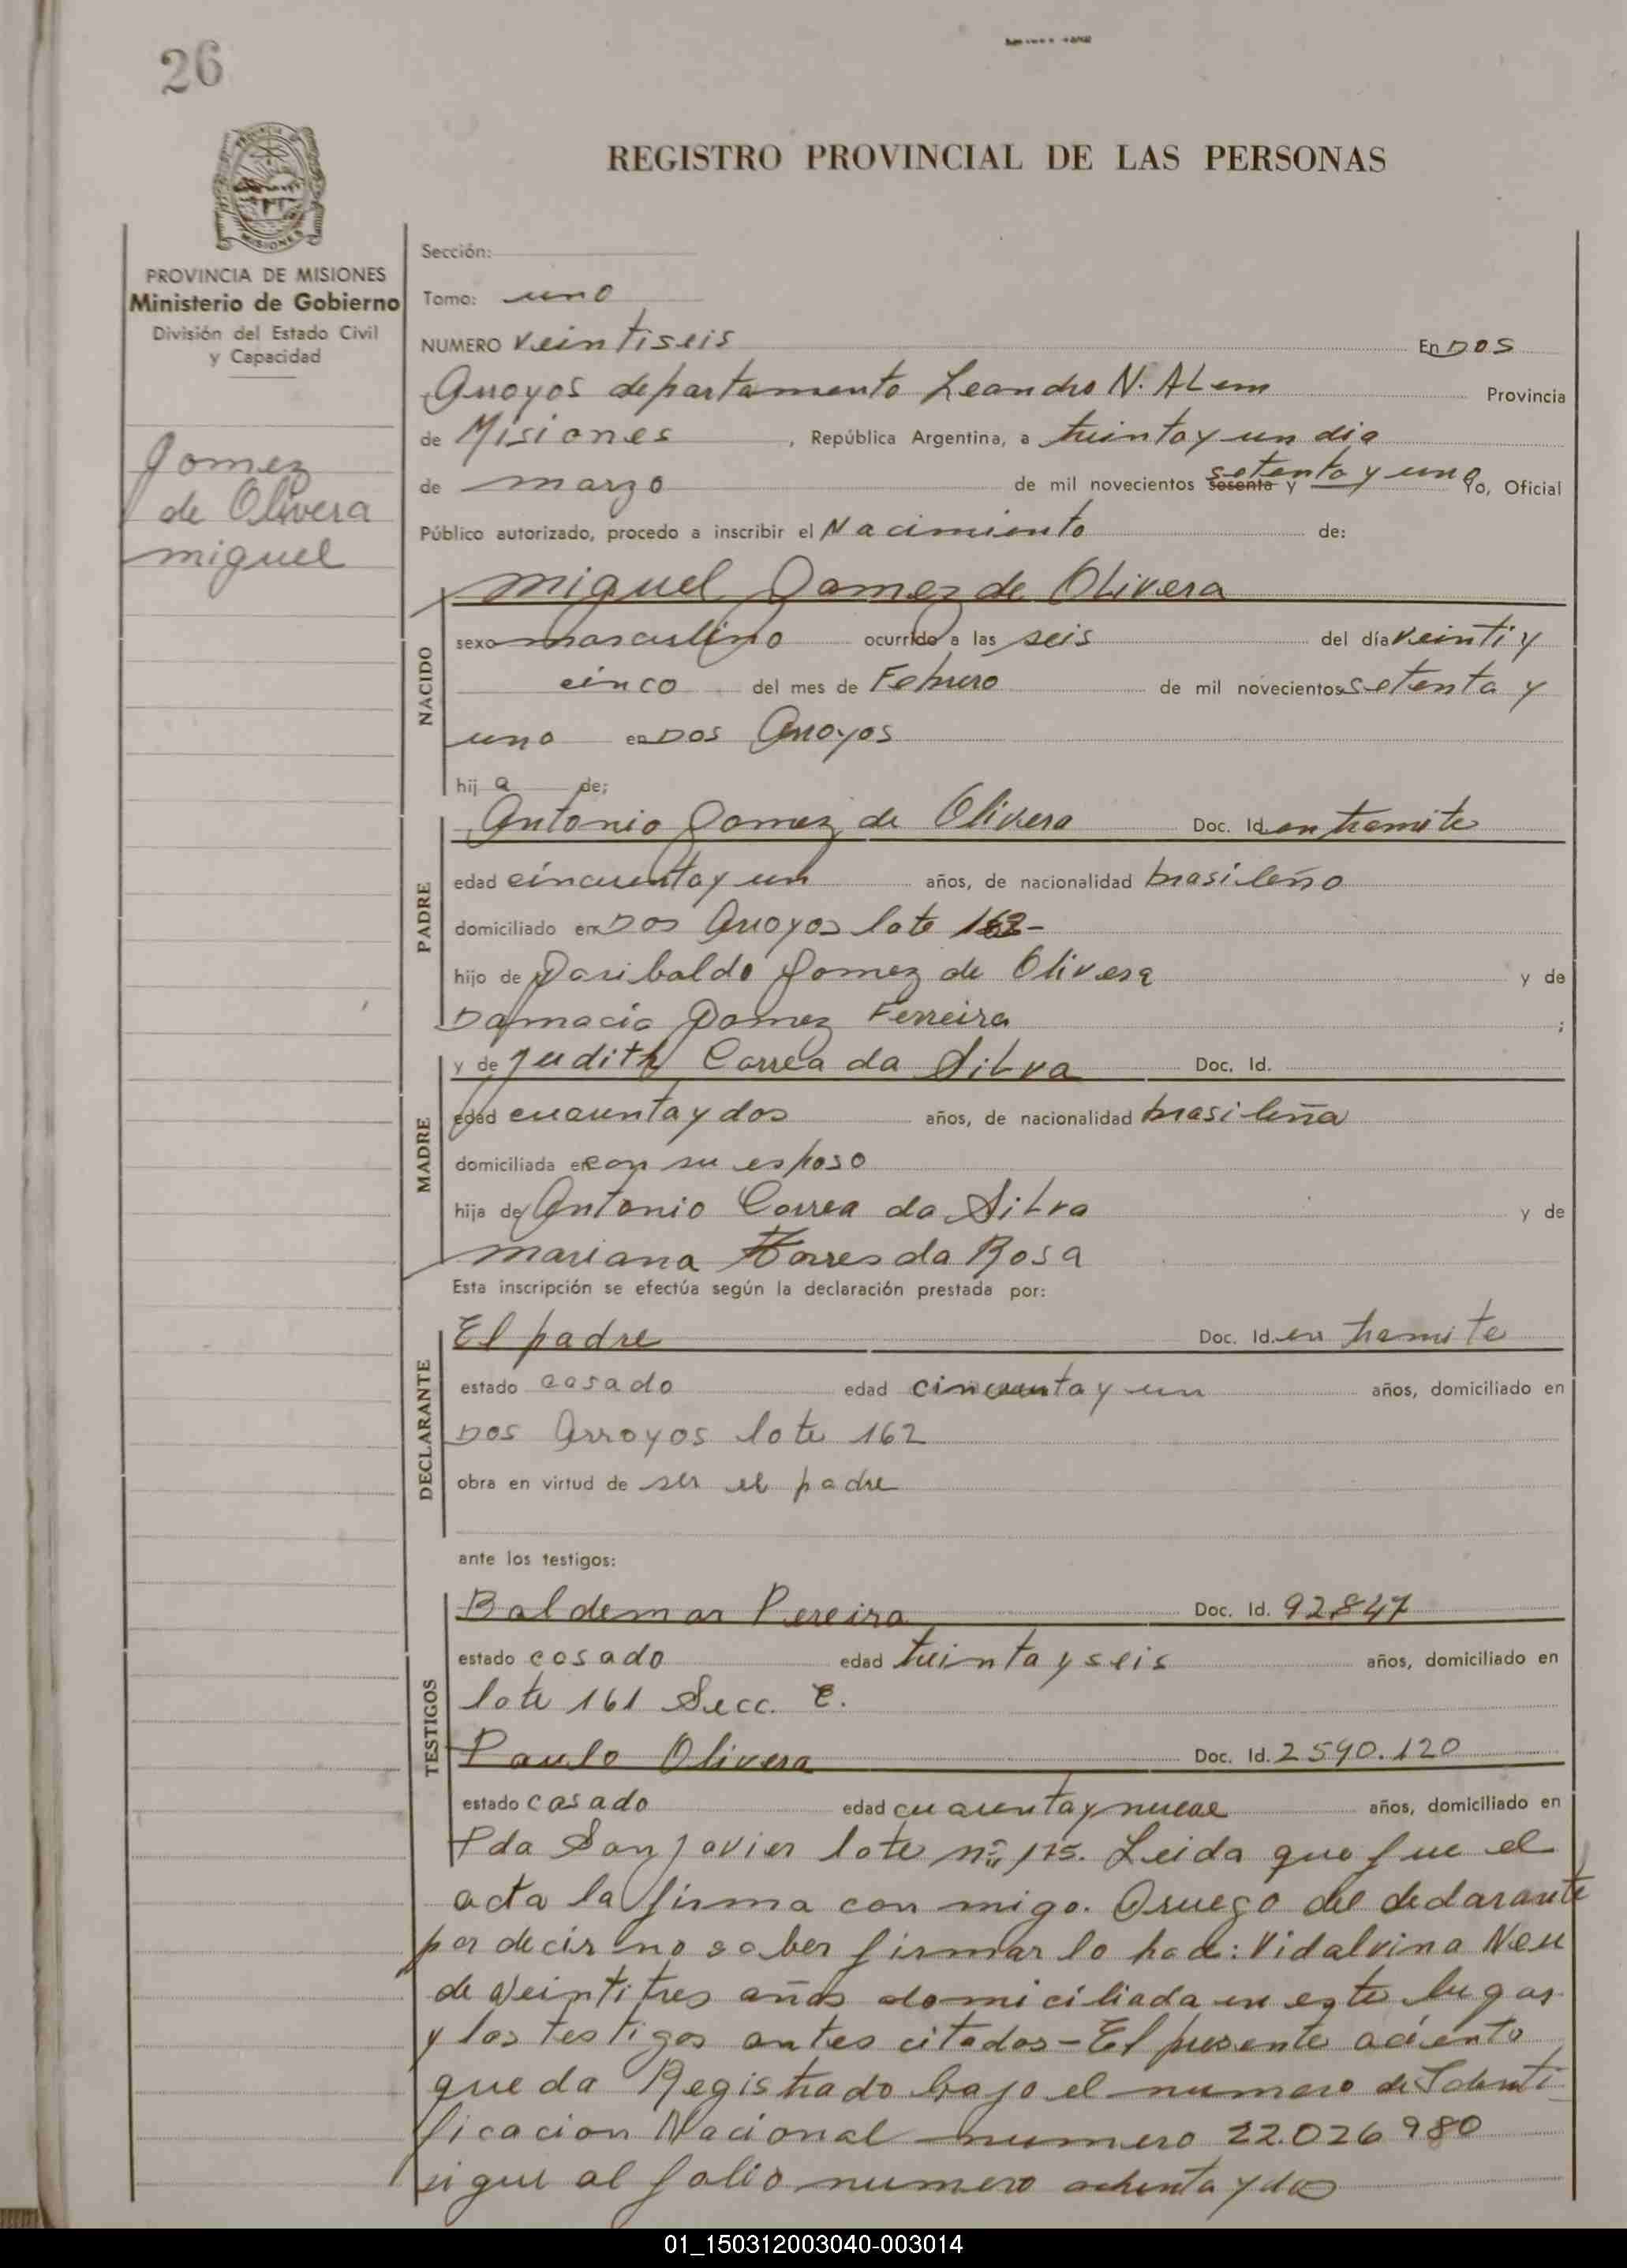 26
REGISTRO PROVINCIAL DE LAS PERSONAS
PROVINCIA DE MISIONES
Ministerio de Gobierno
División del Estado Civil
y Capacidad
Gomez
de Olivera
miguel
Sección:
Tomo: uno
NUMERO veintiseis En DOS
Arroyos departamento Leandro N. ALem Provincia
de Misiones, República Argentina, a treinta y un dia
de marzo de mil novecientos sesenta y setenta y uno Yo, Oficial
Público autorizado, procedo a inscribir el Nacimiento de:
miguel Gomez de Olivera
NACIDO
sexo masculino ocurrido a las seis del día veinti y
cinco del mes de Febrero de mil novecientos setenta y
uno en DOS Arroyos
hij a de;
PADRE
Antonio Gomez de Olivera Doc. Id. en tramite
edad cincuenta y un años, de nacionalidad brasileño
domiciliado en DOS Arroyos lote 162-
hijo de Garibaldo Gomez de Olivera y de
Damacia Gomez Ferreira ;
MADRE
y de Judith Correa da Silva Doc. Id.
edad cuarenta y dos años, de nacionalidad brasileña
domiciliada en con su esposo
hija de Antonio Correa da Silva y de
mariana Torres da Rosa
Esta inscripción se efectúa según la declaración prestada por:
DECLARANTE
El padre Doc. Id. en tramite
estado casado edad cincuenta y un años, domiciliado en
DOS Arroyos lote 162
obra en virtud de ser el padre
ante los testigos:
TESTIGOS
Baldemar Pereira Doc. Id. 92.847
estado casado edad treinta y seis años, domiciliado en
lote 161 Secc. E.
Paulo Olivera Doc. Id. 2590.120
estado casado edad cuarenta y nueve años, domiciliado en
Pda San Javier lote nº 175. Leida que fue el
acta la firma con migo. Oruego del declarante
por decir no saber firmar lo hace: Vidalvina Neu
de veintitres años domiciliada en este lugar
y los testigos antes citados - El presente aciento
queda Registrado bajo el numero de Identi
ficacion Nacional numero 22.026980
sigue al folio numero ochenta y dos
01_150312003040-003014